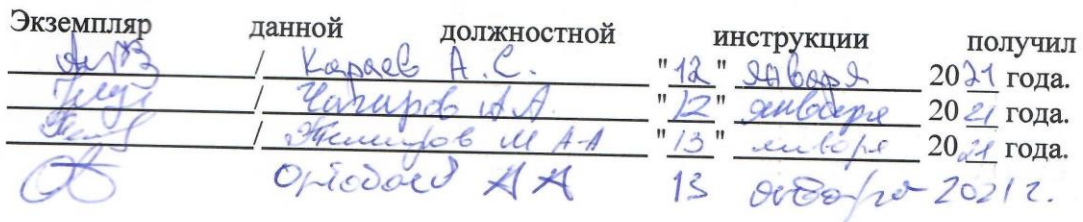 Экземпляр данной должностной инструкции получил
/ Караев А.С. "12" января 2021 года.
/ А.А. "12" января 2021 года.
/ М А-А "13" января 2021 года.
А А 13 января 2021 г.